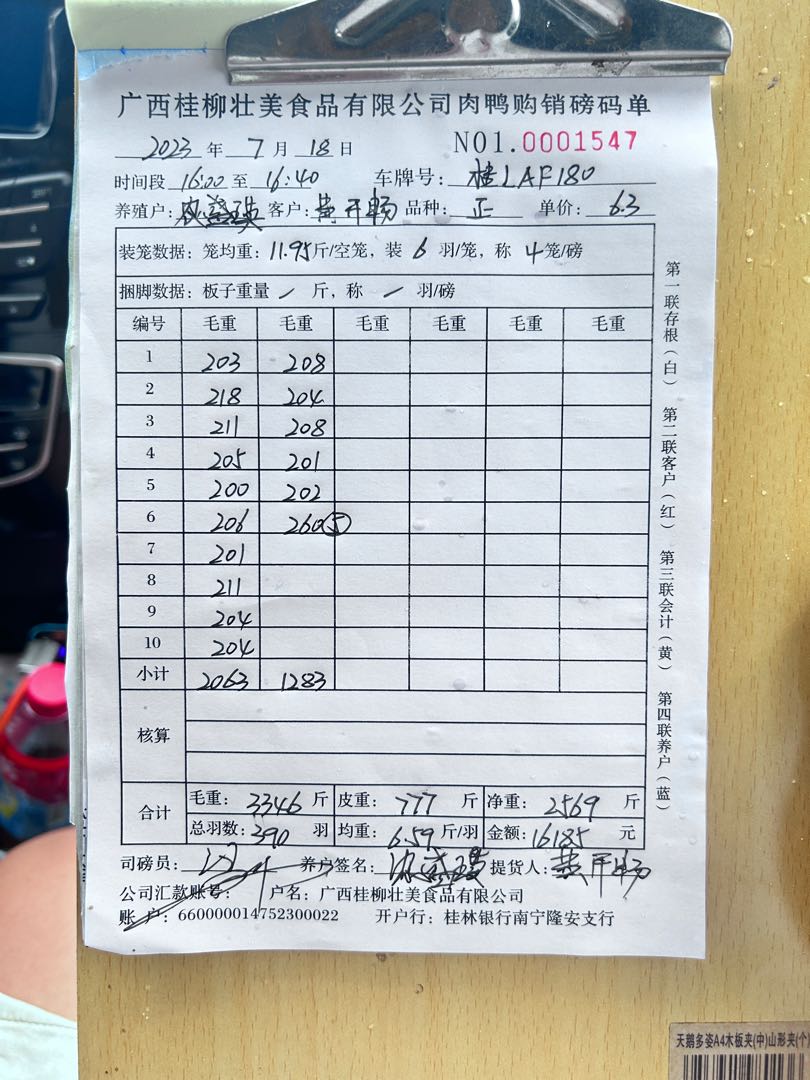 广西桂柳壮美食品有限公司肉鸭购销磅码单
2023 年 7 月 18 日 NO1.0001547
时间段 16:00 至 16:40 车牌号: 桂LAF180
养殖户: 客户: 黄开畅 品种: 正 单价: 6.3
装笼数据: 笼均重: 11.95斤/空笼, 装 6 羽/笼, 称 4 笼/磅
捆脚数据: 板子重量 / 斤, 称 / 羽/磅
编号 毛重 毛重 毛重 毛重 毛重 毛重
1 203 208
2 218 204
3 211 208
4 205 201
5 200 202
6 206 260⑤
7 201
8 211
9 204
10 204
小计 2063 1283
核算
合计 毛重: 3346 斤 皮重: 777 斤 净重: 2569 斤
总羽数: 390 羽 均重: 6.59 斤/羽 金额: 16185 元
司磅员: 养户签名: 提货人: 黄开畅
公司汇款账号: 户名: 广西桂柳壮美食品有限公司
账 户: 660000014752300022 开户行: 桂林银行南宁隆安支行
第一联存根(白) 第二联客户(红) 第三联会计(黄) 第四联养户(蓝)
天鹅多姿A4木板夹(中)山形夹(个)